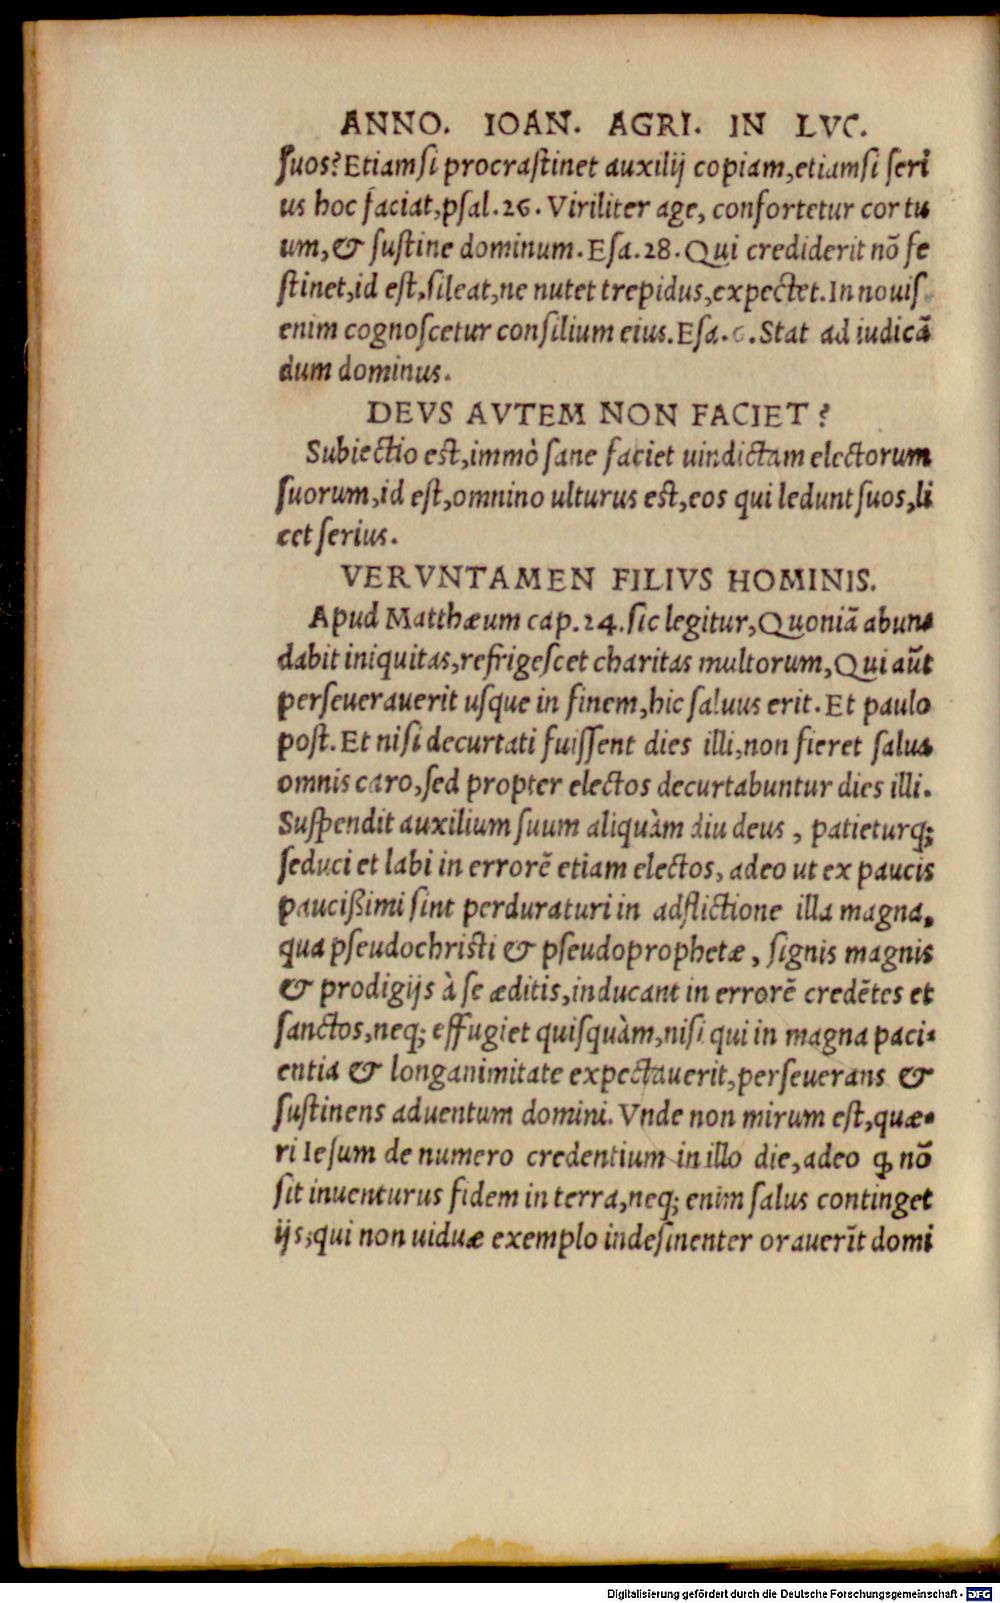 ANNO. IOAN. AGRI. IN LVC.
ſuos? Etiamſi procraſtinet auxilij copiam, etiamſi ſeri
us hoc faciat, pſal. 26. Viriliter age, confortetur cor tu
um, & ſuſtine dominum. Eſa. 28. Qui crediderit nõ fe
ſtinet, id eſt, ſileat, ne nutet trepidus, expectet. In nouiſ
enim cognoſcetur conſilium eius. Eſa. 6. Stat ad iudicã
dum dominus.
DEVS AVTEM NON FACIET?
Subiectio eſt, immò ſane faciet uindictam electorum
ſuorum, id eſt, omnino ulturus eſt, eos qui ledunt ſuos, li
cet ſerius.
VERVNTAMEN FILIVS HOMINIS.
Apud Matthæum cap. 24. ſic legitur, Quoniã abun-
dabit iniquitas, refrigeſcet charitas multorum, Qui aũt
perſeuerauerit uſque in finem, hic ſaluus erit. Et paulo
poſt. Et niſi decurtati fuiſſent dies illi, non fieret ſalua
omnis caro, ſed propter electos decurtabuntur dies illi.
Suſpendit auxilium ſuum aliquàm diu deus, patieturq;
ſeduci et labi in errorẽ etiam electos, adeo ut ex paucis
paucißimi ſint perduraturi in adflictione illa magna,
qua pſeudochriſti & pſeudoprophetæ, ſignis magnis
& prodigijs à ſe æditis, inducant in errorẽ credẽtes et
ſanctos, neq; effugiet quiſquàm, niſi qui in magna paci-
entia & longanimitate expectauerit, perſeuerans &
ſuſtinens aduentum domini. Vnde non mirum eſt, quæ-
ri Ieſum de numero credentium in illo die, adeo ꝗ nõ
ſit inuenturus fidem in terra, neq; enim ſalus continget
ijs, qui non uiduæ exemplo indeſinenter orauerĩt domi
Digitalisierung gefördert durch die Deutsche Forschungsgemeinschaft - DFG